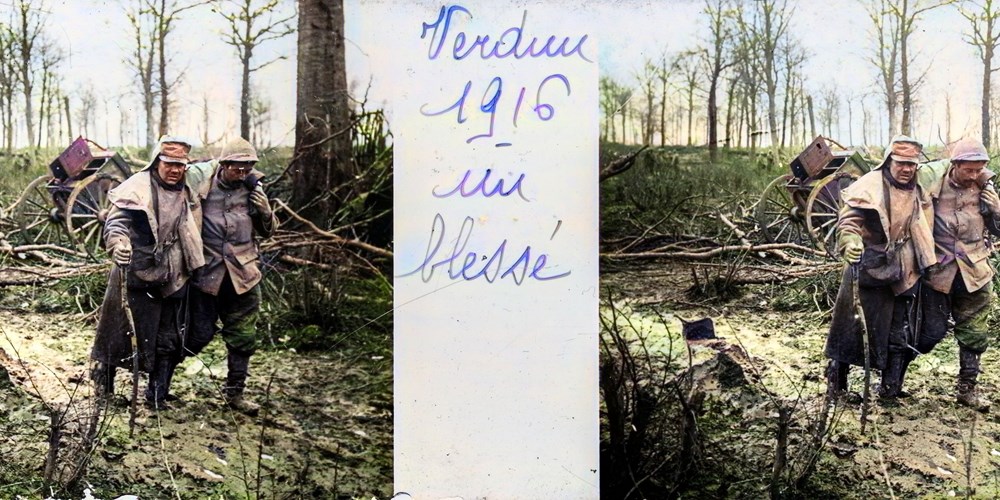 Verdun
1916
un
blessé